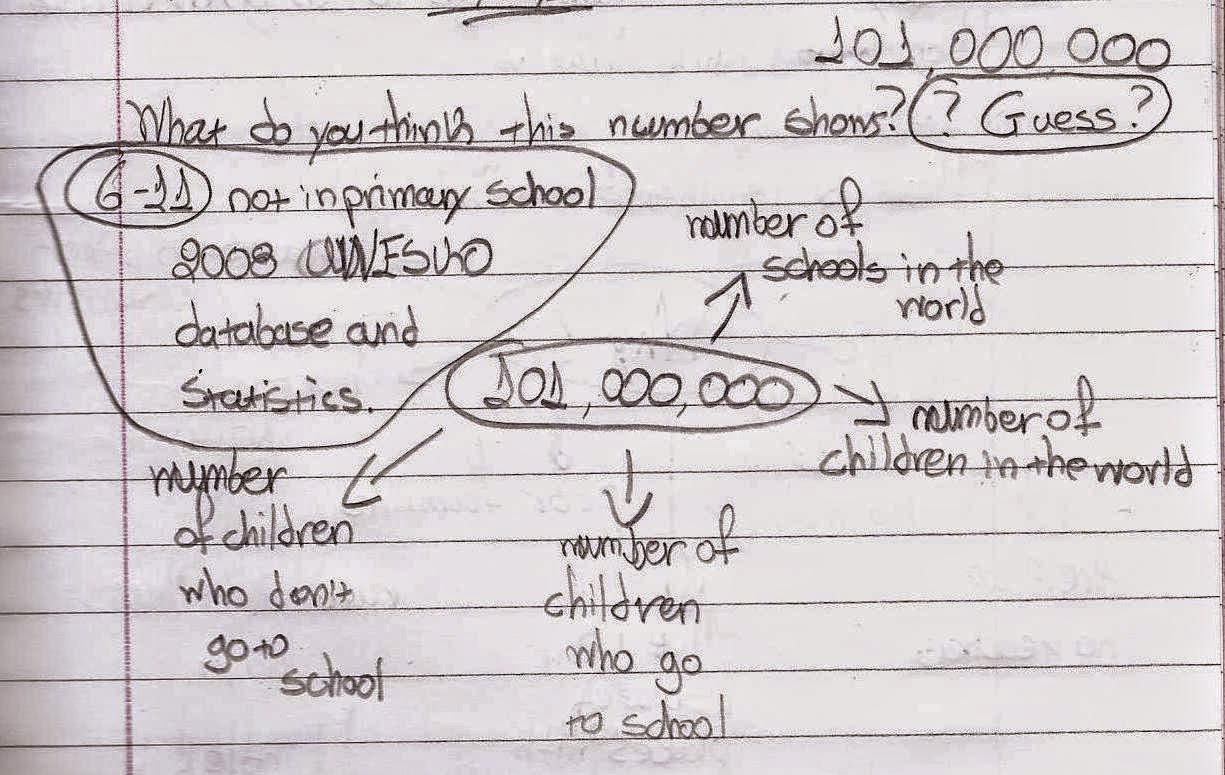 101,000,000
What do you think this number shows? ? Guess?
6-11 not in primary school
2008 UNESCO
database and
Statistics.
number of
schools in the
world
101,000,000
number of
children in the world
number
of children
who don't
go to
school
number of
children
who go
to school